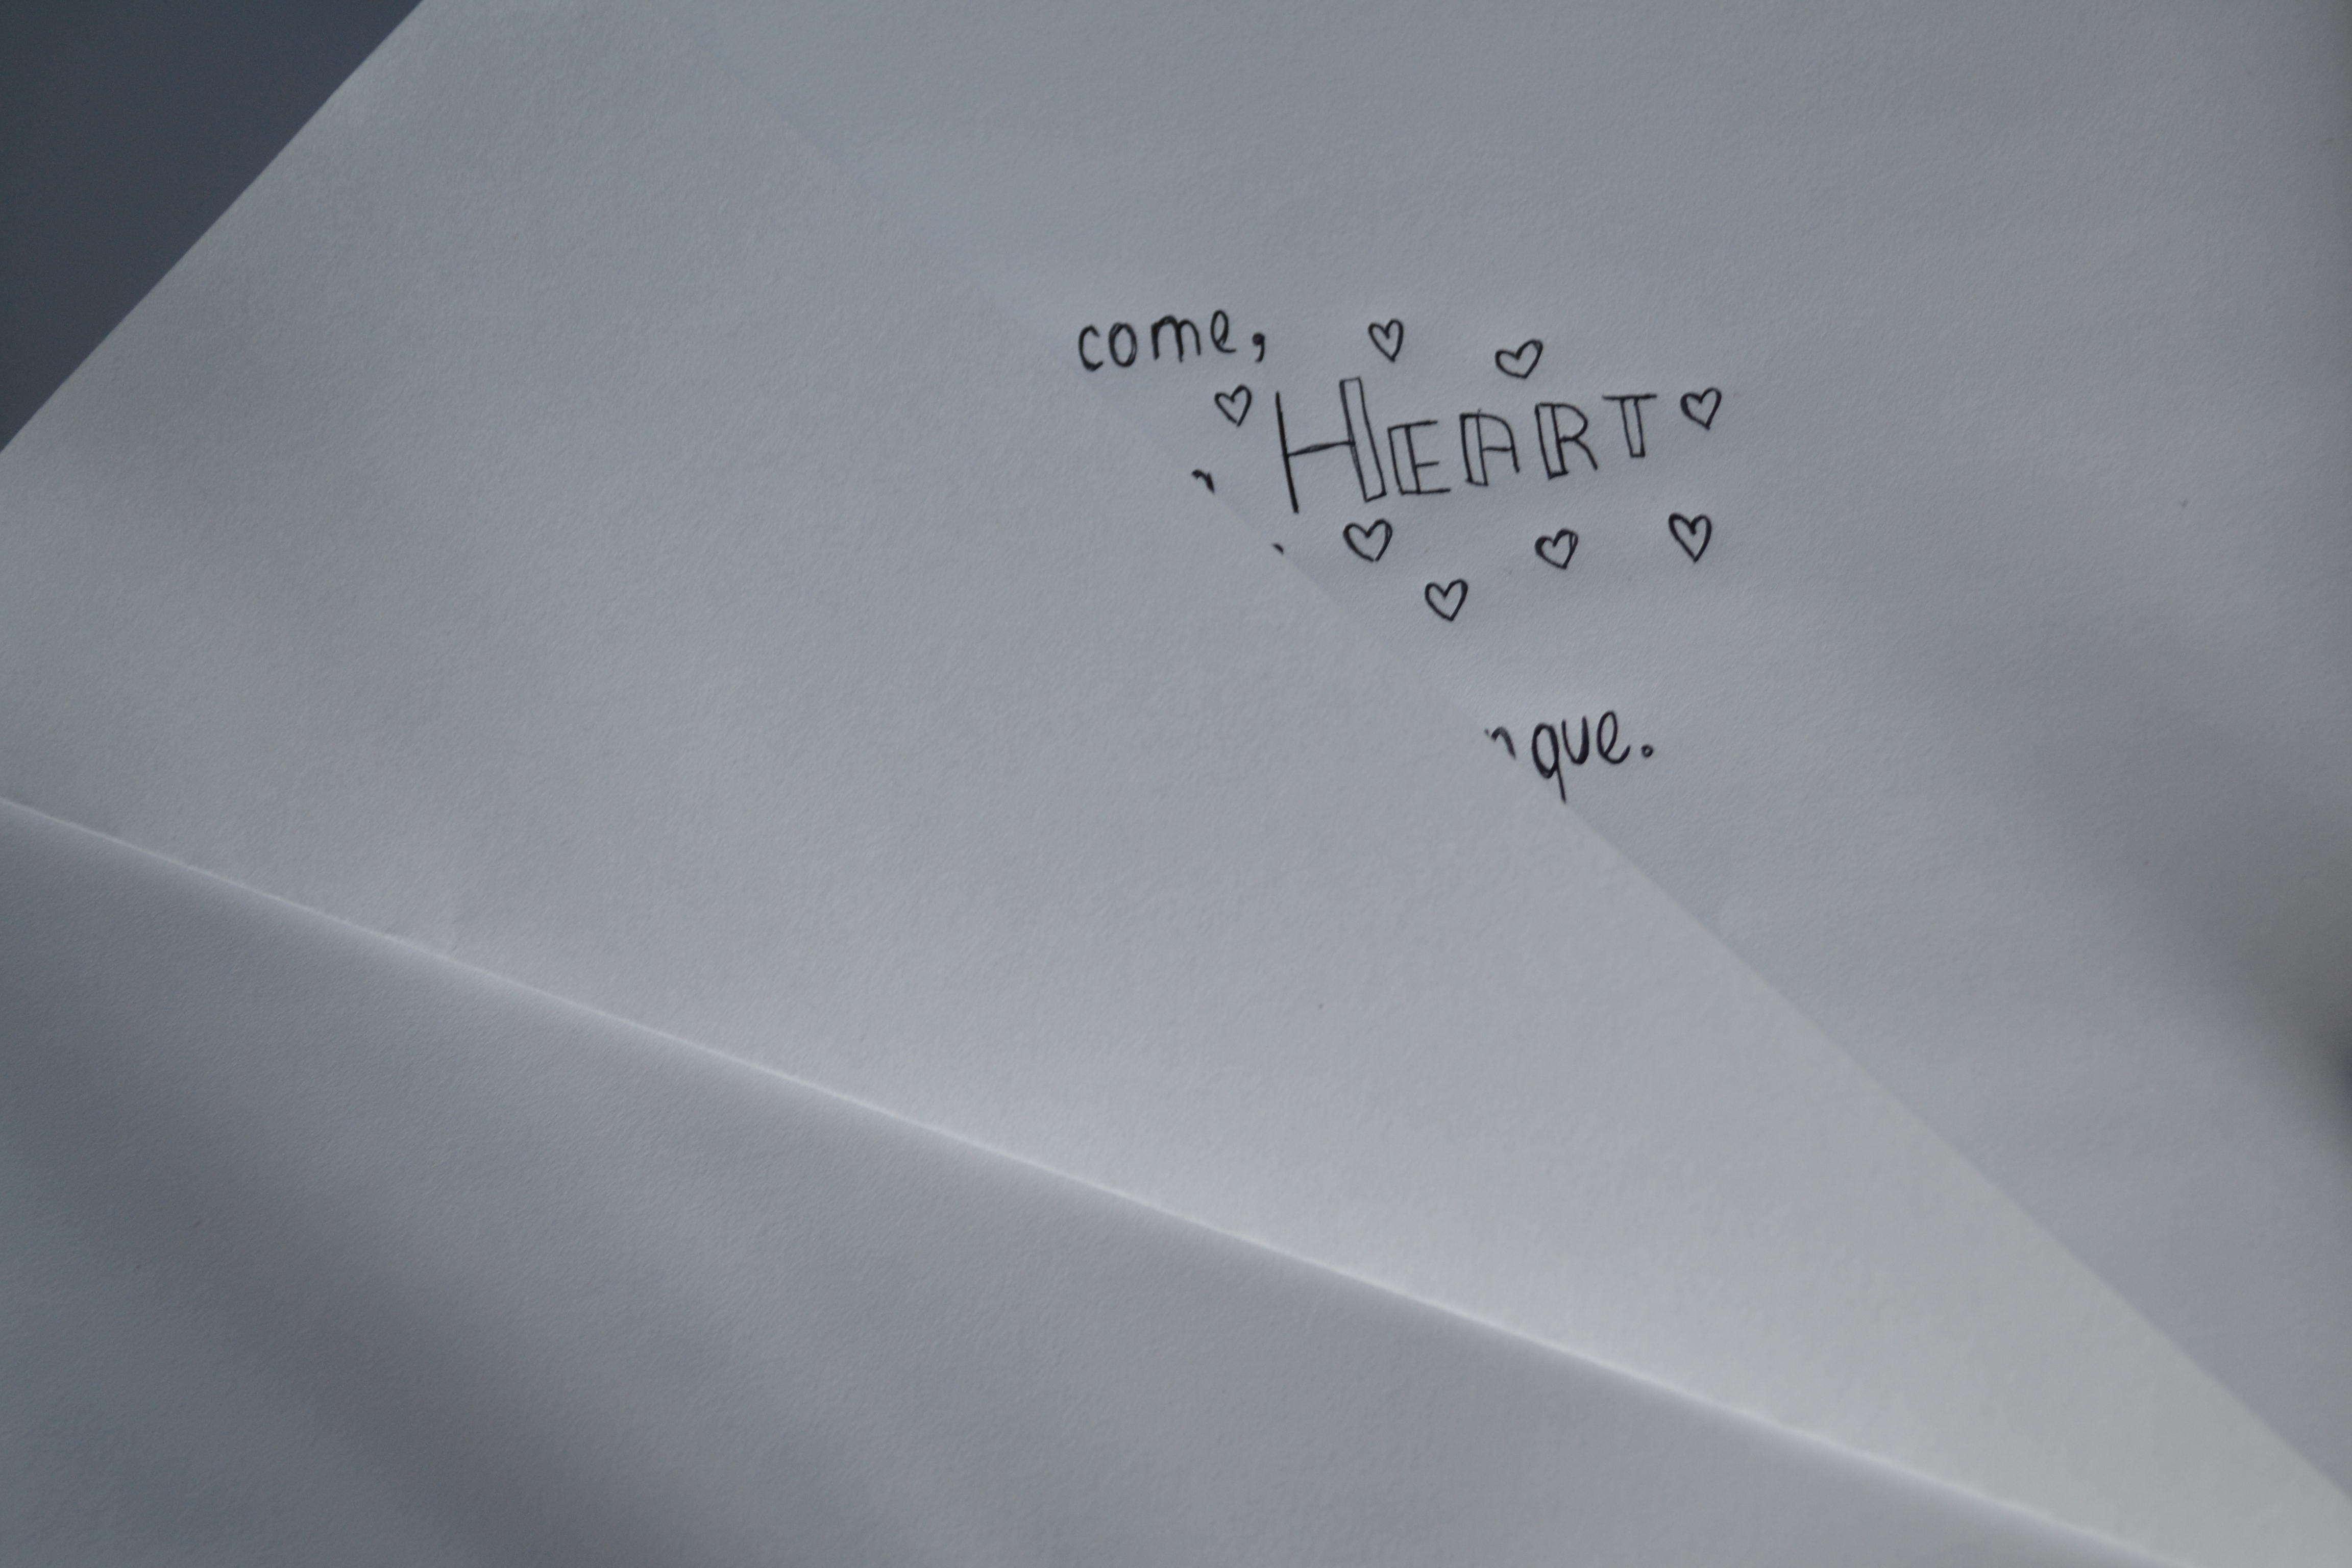 come,
HEART
que.